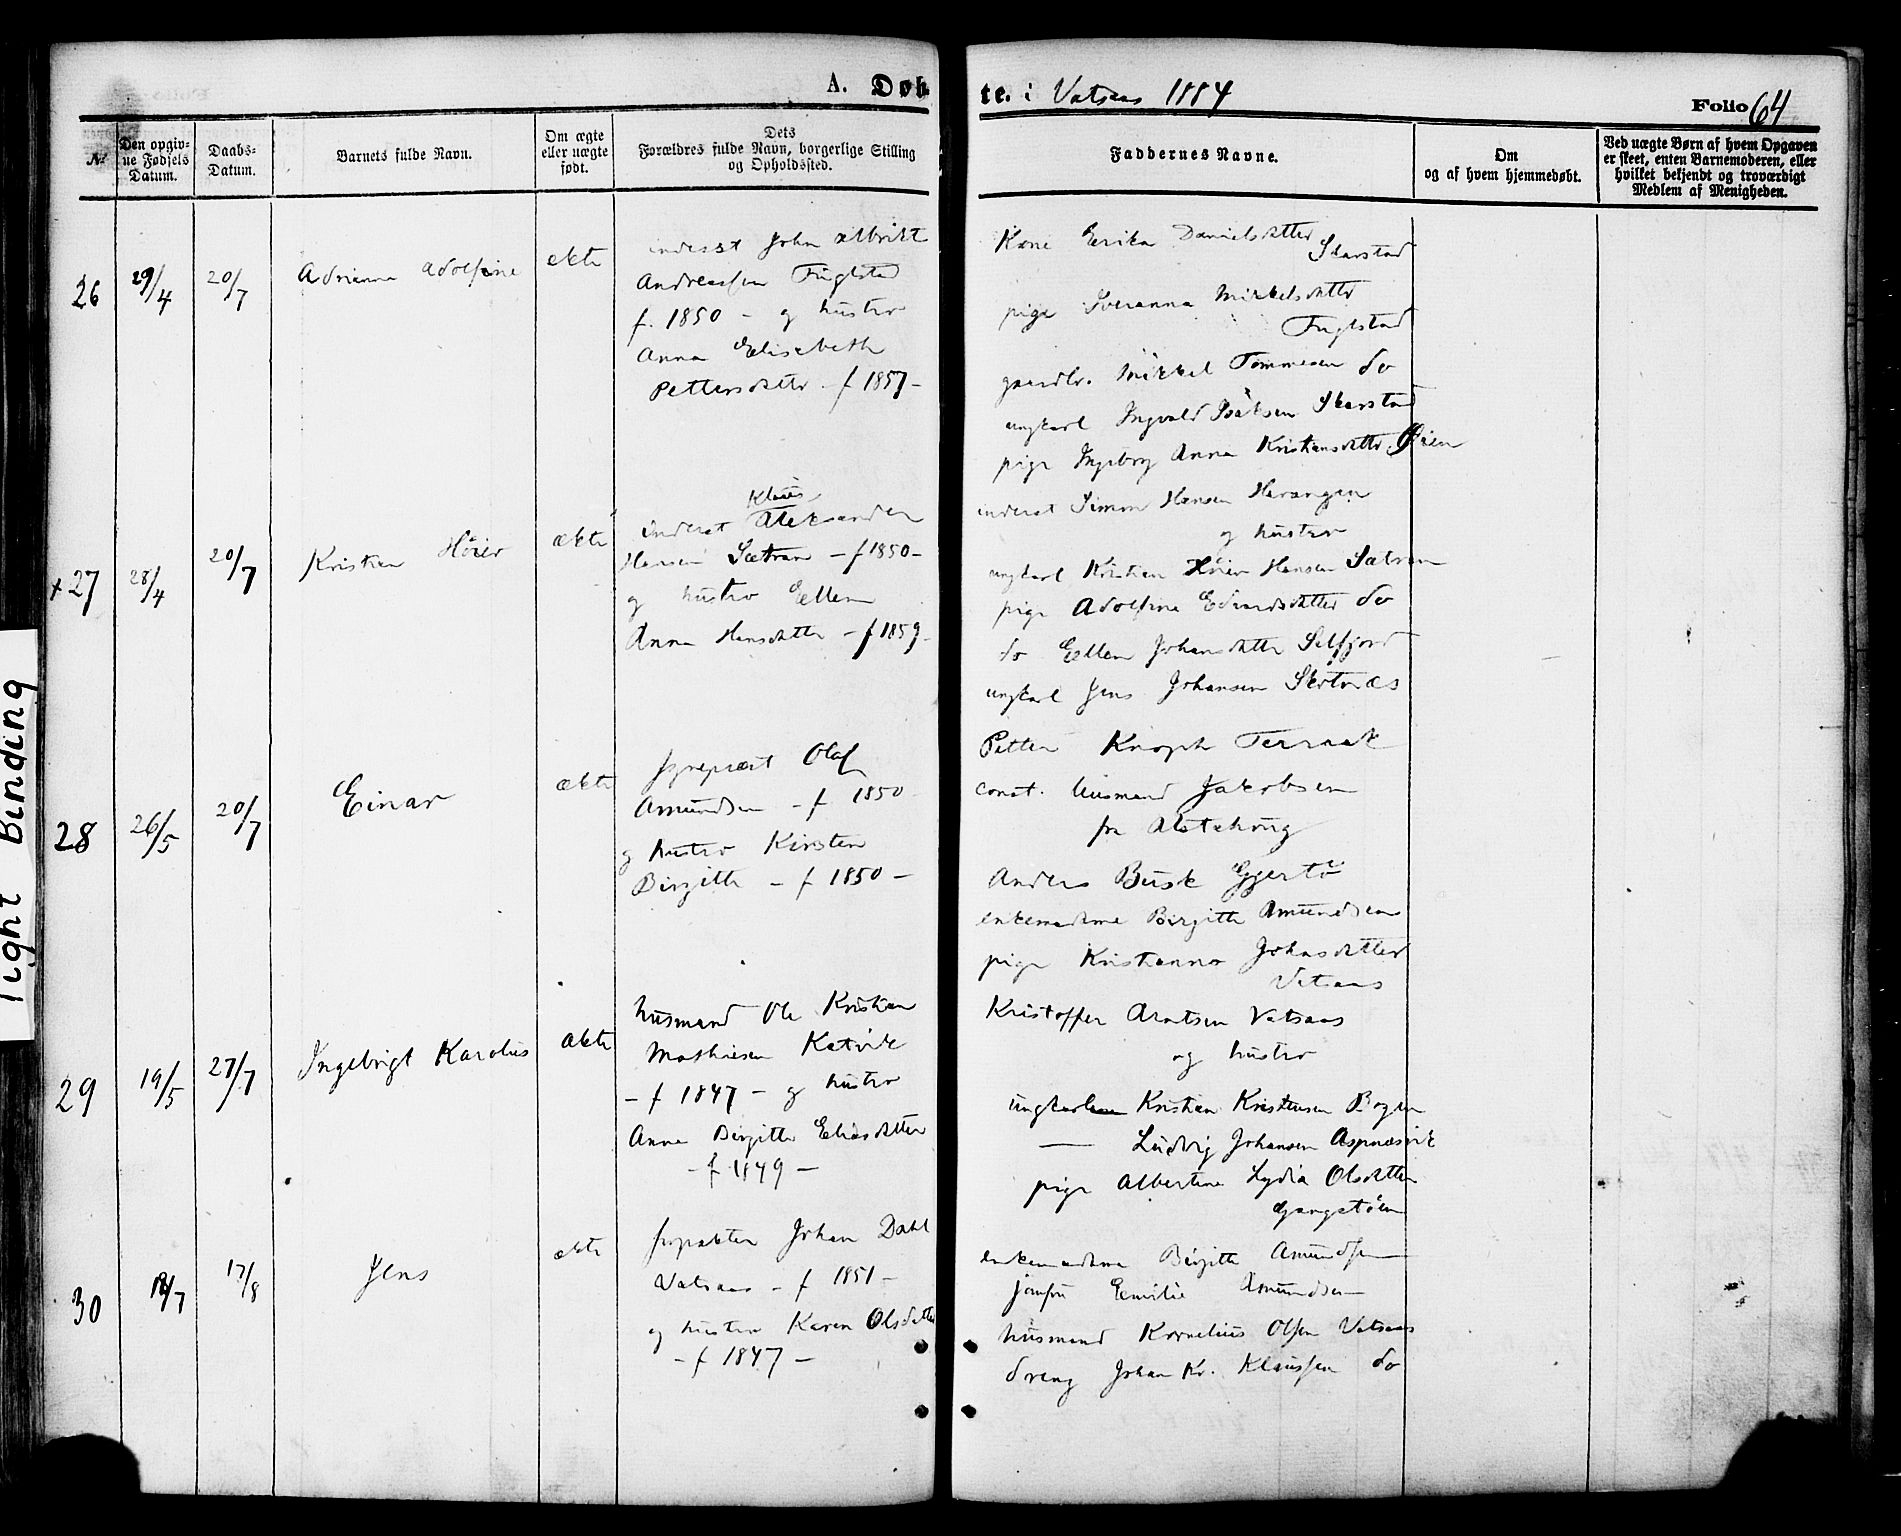 A. Døb
te. i Vatsaas 1884
Folio 64
№
Den opgiv-
ne Fødsels
Datum.
Daabs-
Datum.
Barnets fulde Navn.
Om ægte
eller uægte
født.
Dets
Forældres fulde Navn, borgerlige Stilling
og Opholdssted.
Faddernes Navne.
Om
og af hvem hjemmedøbt.
Ved uægte Børn af hvem Opgaven
er skeet, enten Barnemoderen, eller
hvilket bekjendt og troværdigt
Medlem af Menigheden.
26
29/4
20/7
Adrianna Adolfine
ekte
inderst John Albrikt
Andreassen Fuglstad
f. 1850 - og hustro
Anna Elisabeth
Pettersdatter - f 1857 -
Kone Erika Danielsdatter
Skarstad
pige Mikkelsdatter
Fuglstad
gaardbr. Mikkel Tommesen do
ungkarl Ingvald Isaksen Skarstad
pige Ingeborg Anna Kristiansdatter Øien
+ 27
28/4
20/7
Kristian Höier
ækte
Klaus
inderst Aleksander
Hansen Sætran - f 1850 -
og hustro Ellen
Anna Hansdatter - f 1859 -
inderst Simon Hansen Harangen
og hustro
ungkarl Kristian Höier Hansen Sætran
pige Adolfine Edvardsdatter do
do Ellen Johansdatter Selfjord
ungkarl Jens Johansen Skotnæs
28
26/5
20/7
Einar
ækte
sogneprest Olaf
Amundsen - f 1850 -
og hustro Kirsten
Birgitte - f 1850 -
Petter Knoph Terraak
const. Husmand Jakobsen
fra Alstahoug
Anders Busk
enkemadame Birgitte Amundsen
pige Kristianna Johnsdatter
Vatsaas
29
19/5
27/7
Ingebrigt Karolius
ækte
husmand Ole Kristian
Mathiesen Kalvik
- f 1847 - og hustro
Anna Birgitte Eliasdatter
- f 1849 -
Kristoffer Arntsen Vatsaas
og hustro
ungkarlene Kristian Kristensen Bogen
— Ludvig Johansen Aspnæsvik
pige Albertine Lydia Olsdatter
Gangstöen
30
18/7
17/8
Jens
ekte
forpakter Johan Dahl
Vatsaas - f 1851 -
og hustro Karen Olsdatter
- f 1847 -
enkemadame Birgitte Amundsen
jomfru Emilie Amundsen
husmand Kornelius Olsen Vatsaas
dreng Johan Kr. Klaussen do
Tight Binding